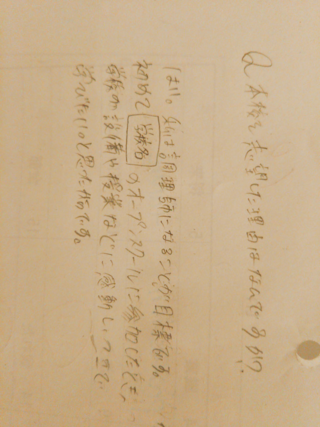 Q 本校を志望した理由はなんですか?
はい。私は調理師になることが目標です。
初めて 学校名 のオープンスクールに参加したとき、
学校の設備や授業などに感動しここで
学びたいと思ったからです。